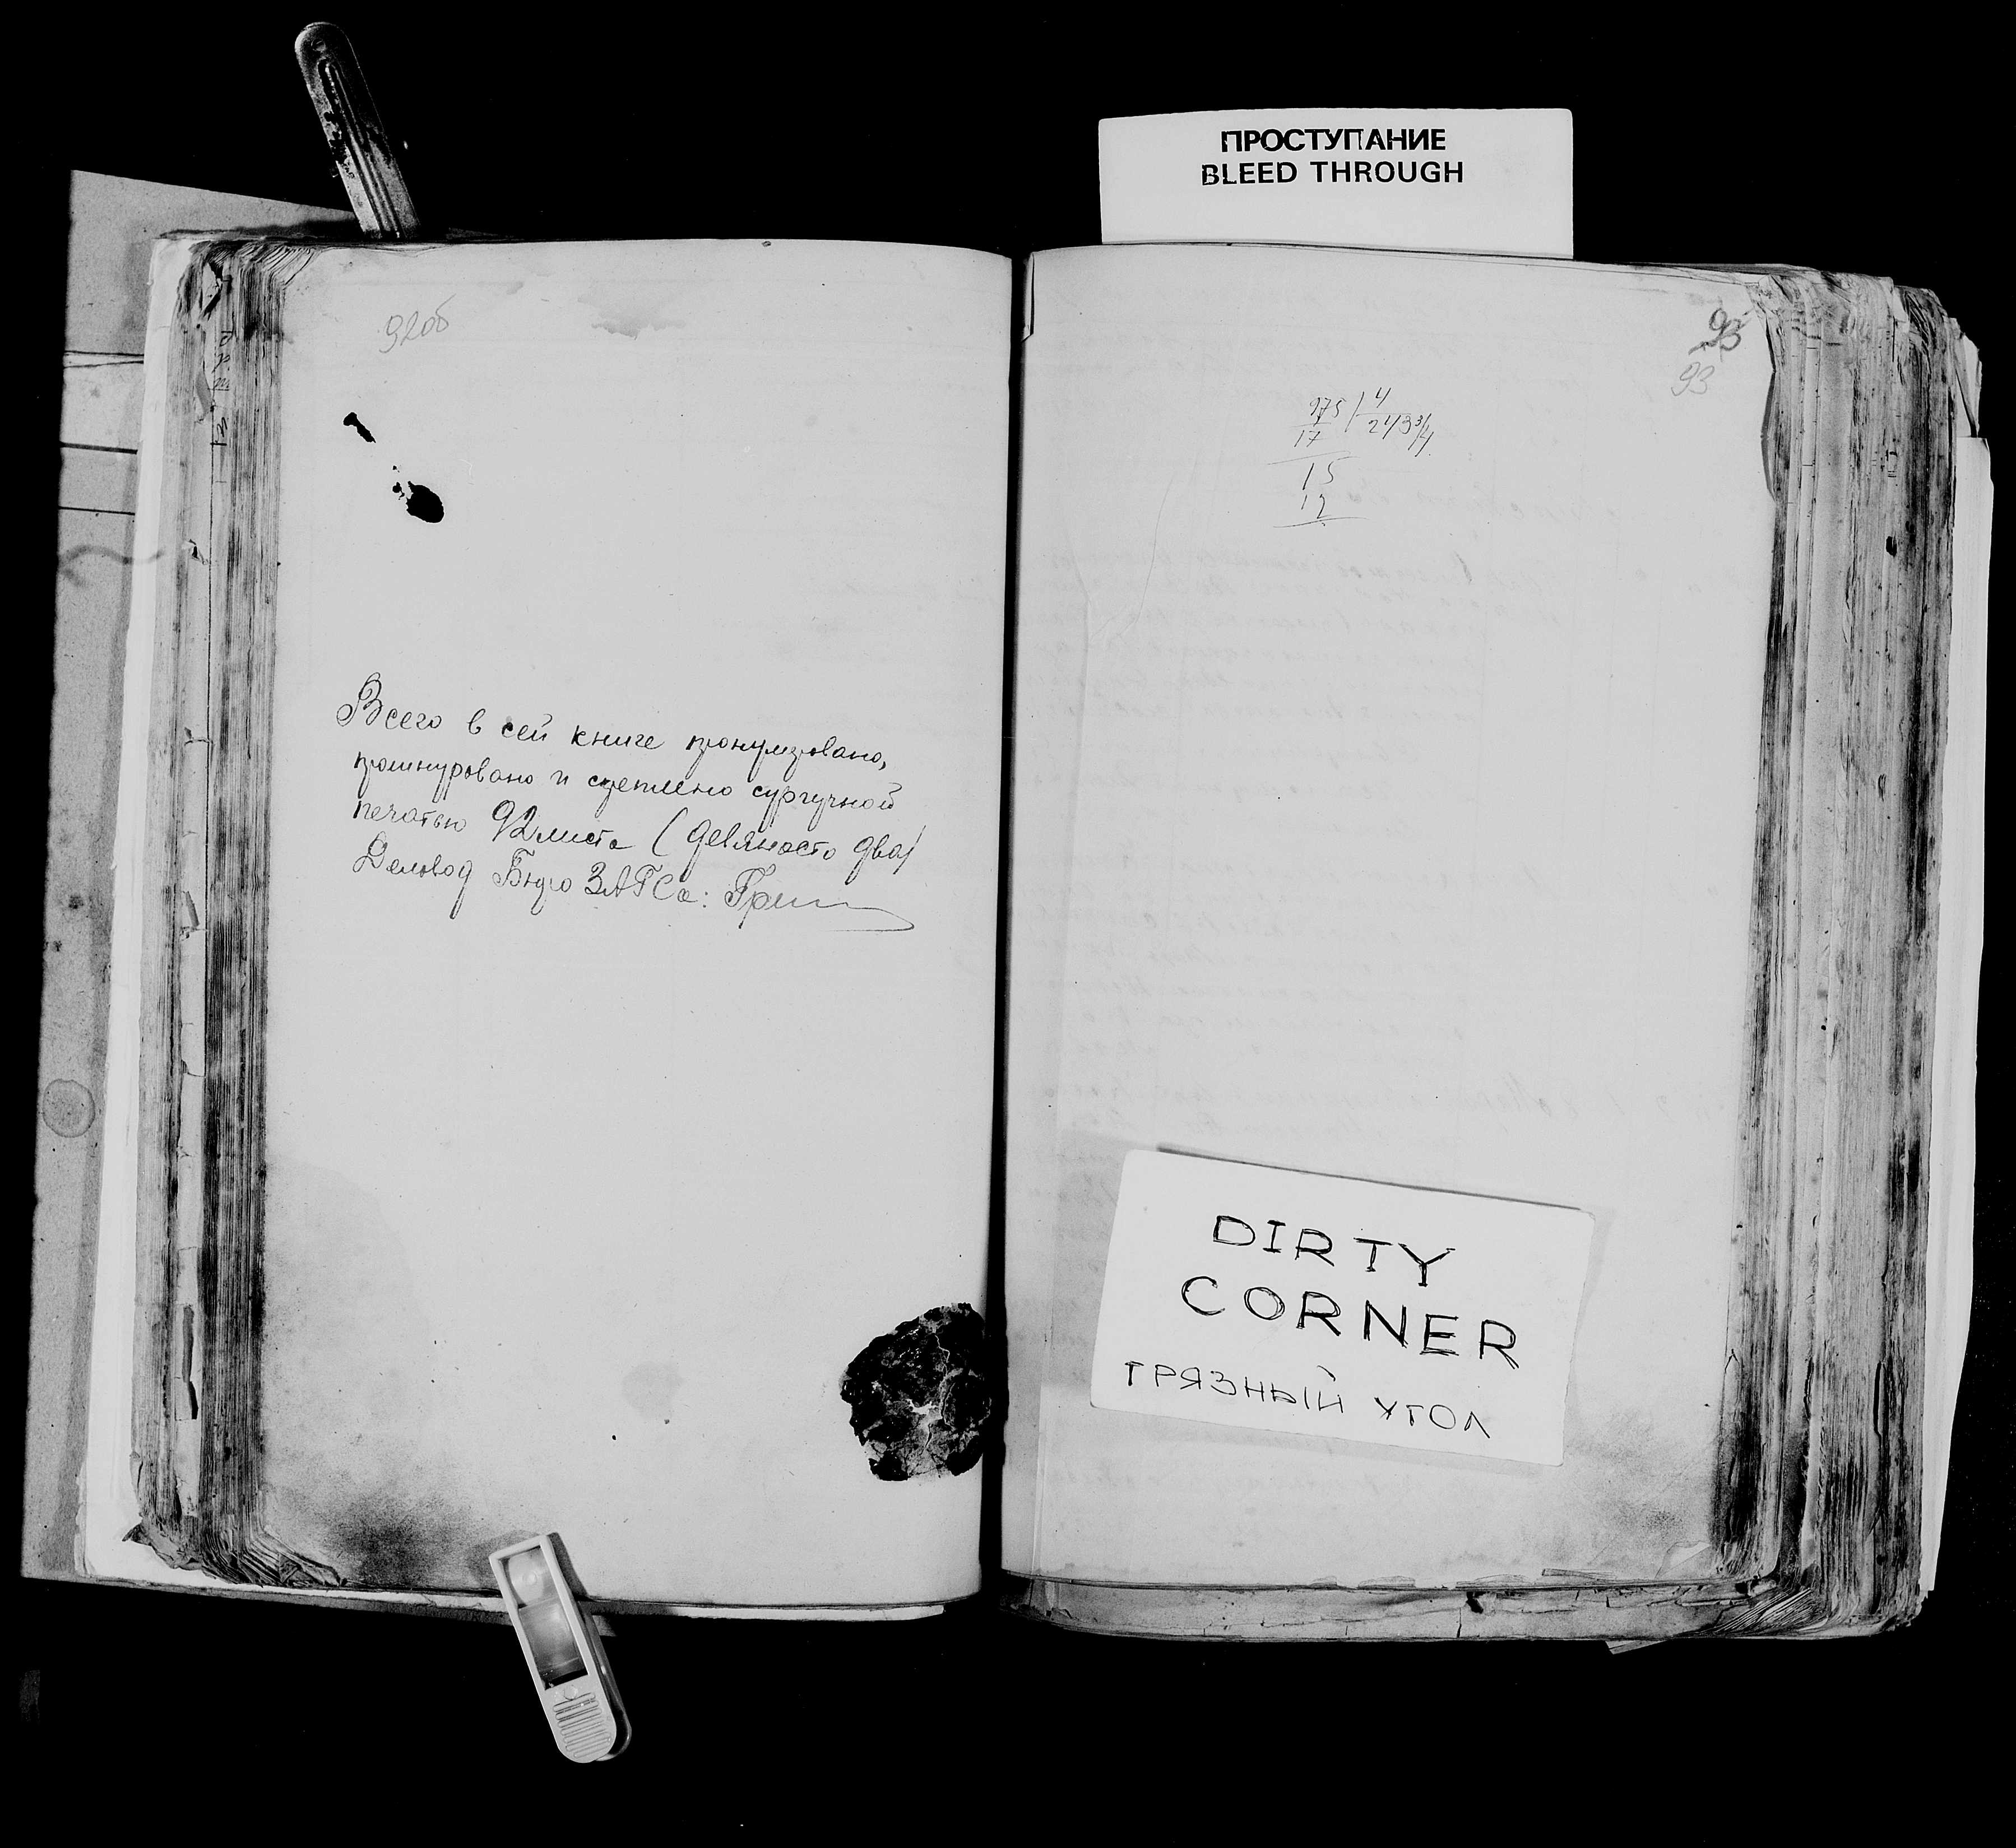 ПРОСТУПАНИЕ
BLEED THROUGH
92об
Всего в сей книге пронумеровано,
прошнуровано и скреплено сургучной
печатью 92 листа (девяносто два)
Деловод Бюро ЗАГСа:
93
93
975 | 4
17 243 3/4
15
12
DIRTY
CORNER
ГРЯЗНЫЙ УГОЛ